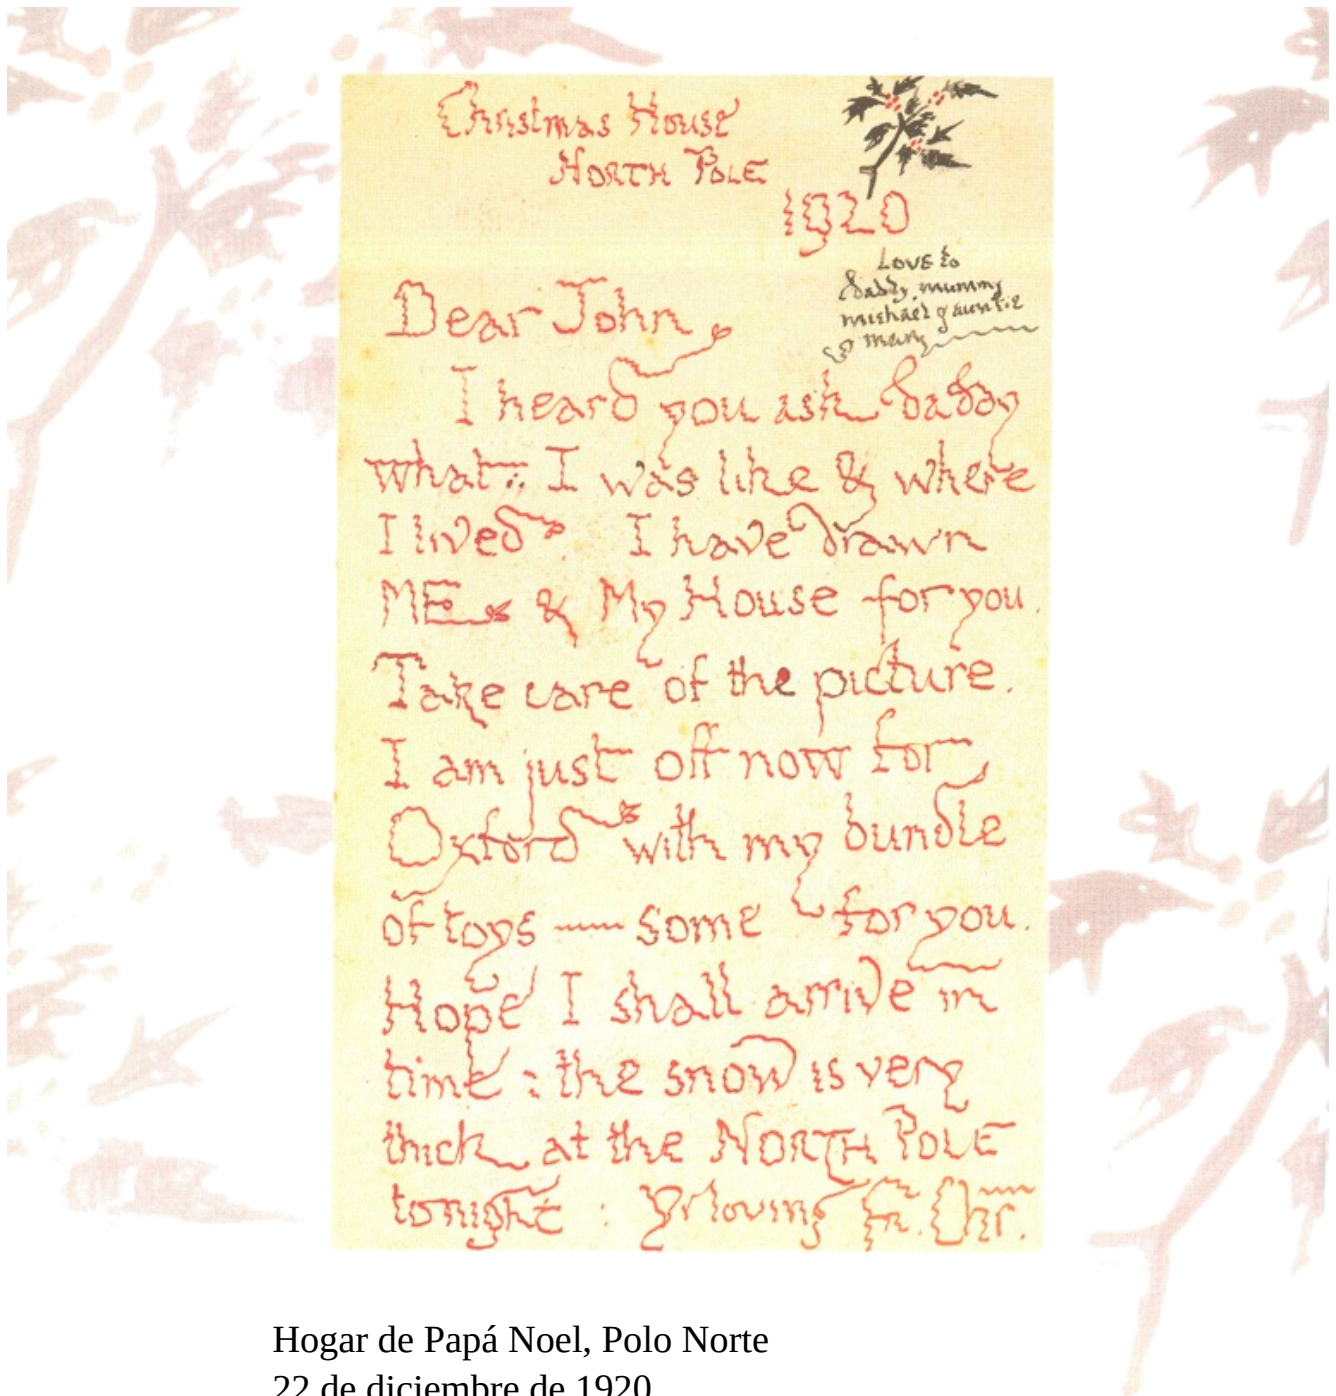 Christmas House
NORTH POLE
1920
Love to
daddy, mummy
michael & auntie
mary
Dear John
I heard you ask daddy
what I was like & where
I lived. I have drawn
ME & My House for you.
Take care of the picture.
I am just off now for
Oxford with my bundle
of toys — some for you.
Hope I shall arrive in
time : the snow is very
thick at the NORTH POLE
tonight : Yr loving Fr. Chr.
Hogar de Papá Noel, Polo Norte
22 de diciembre de 1920